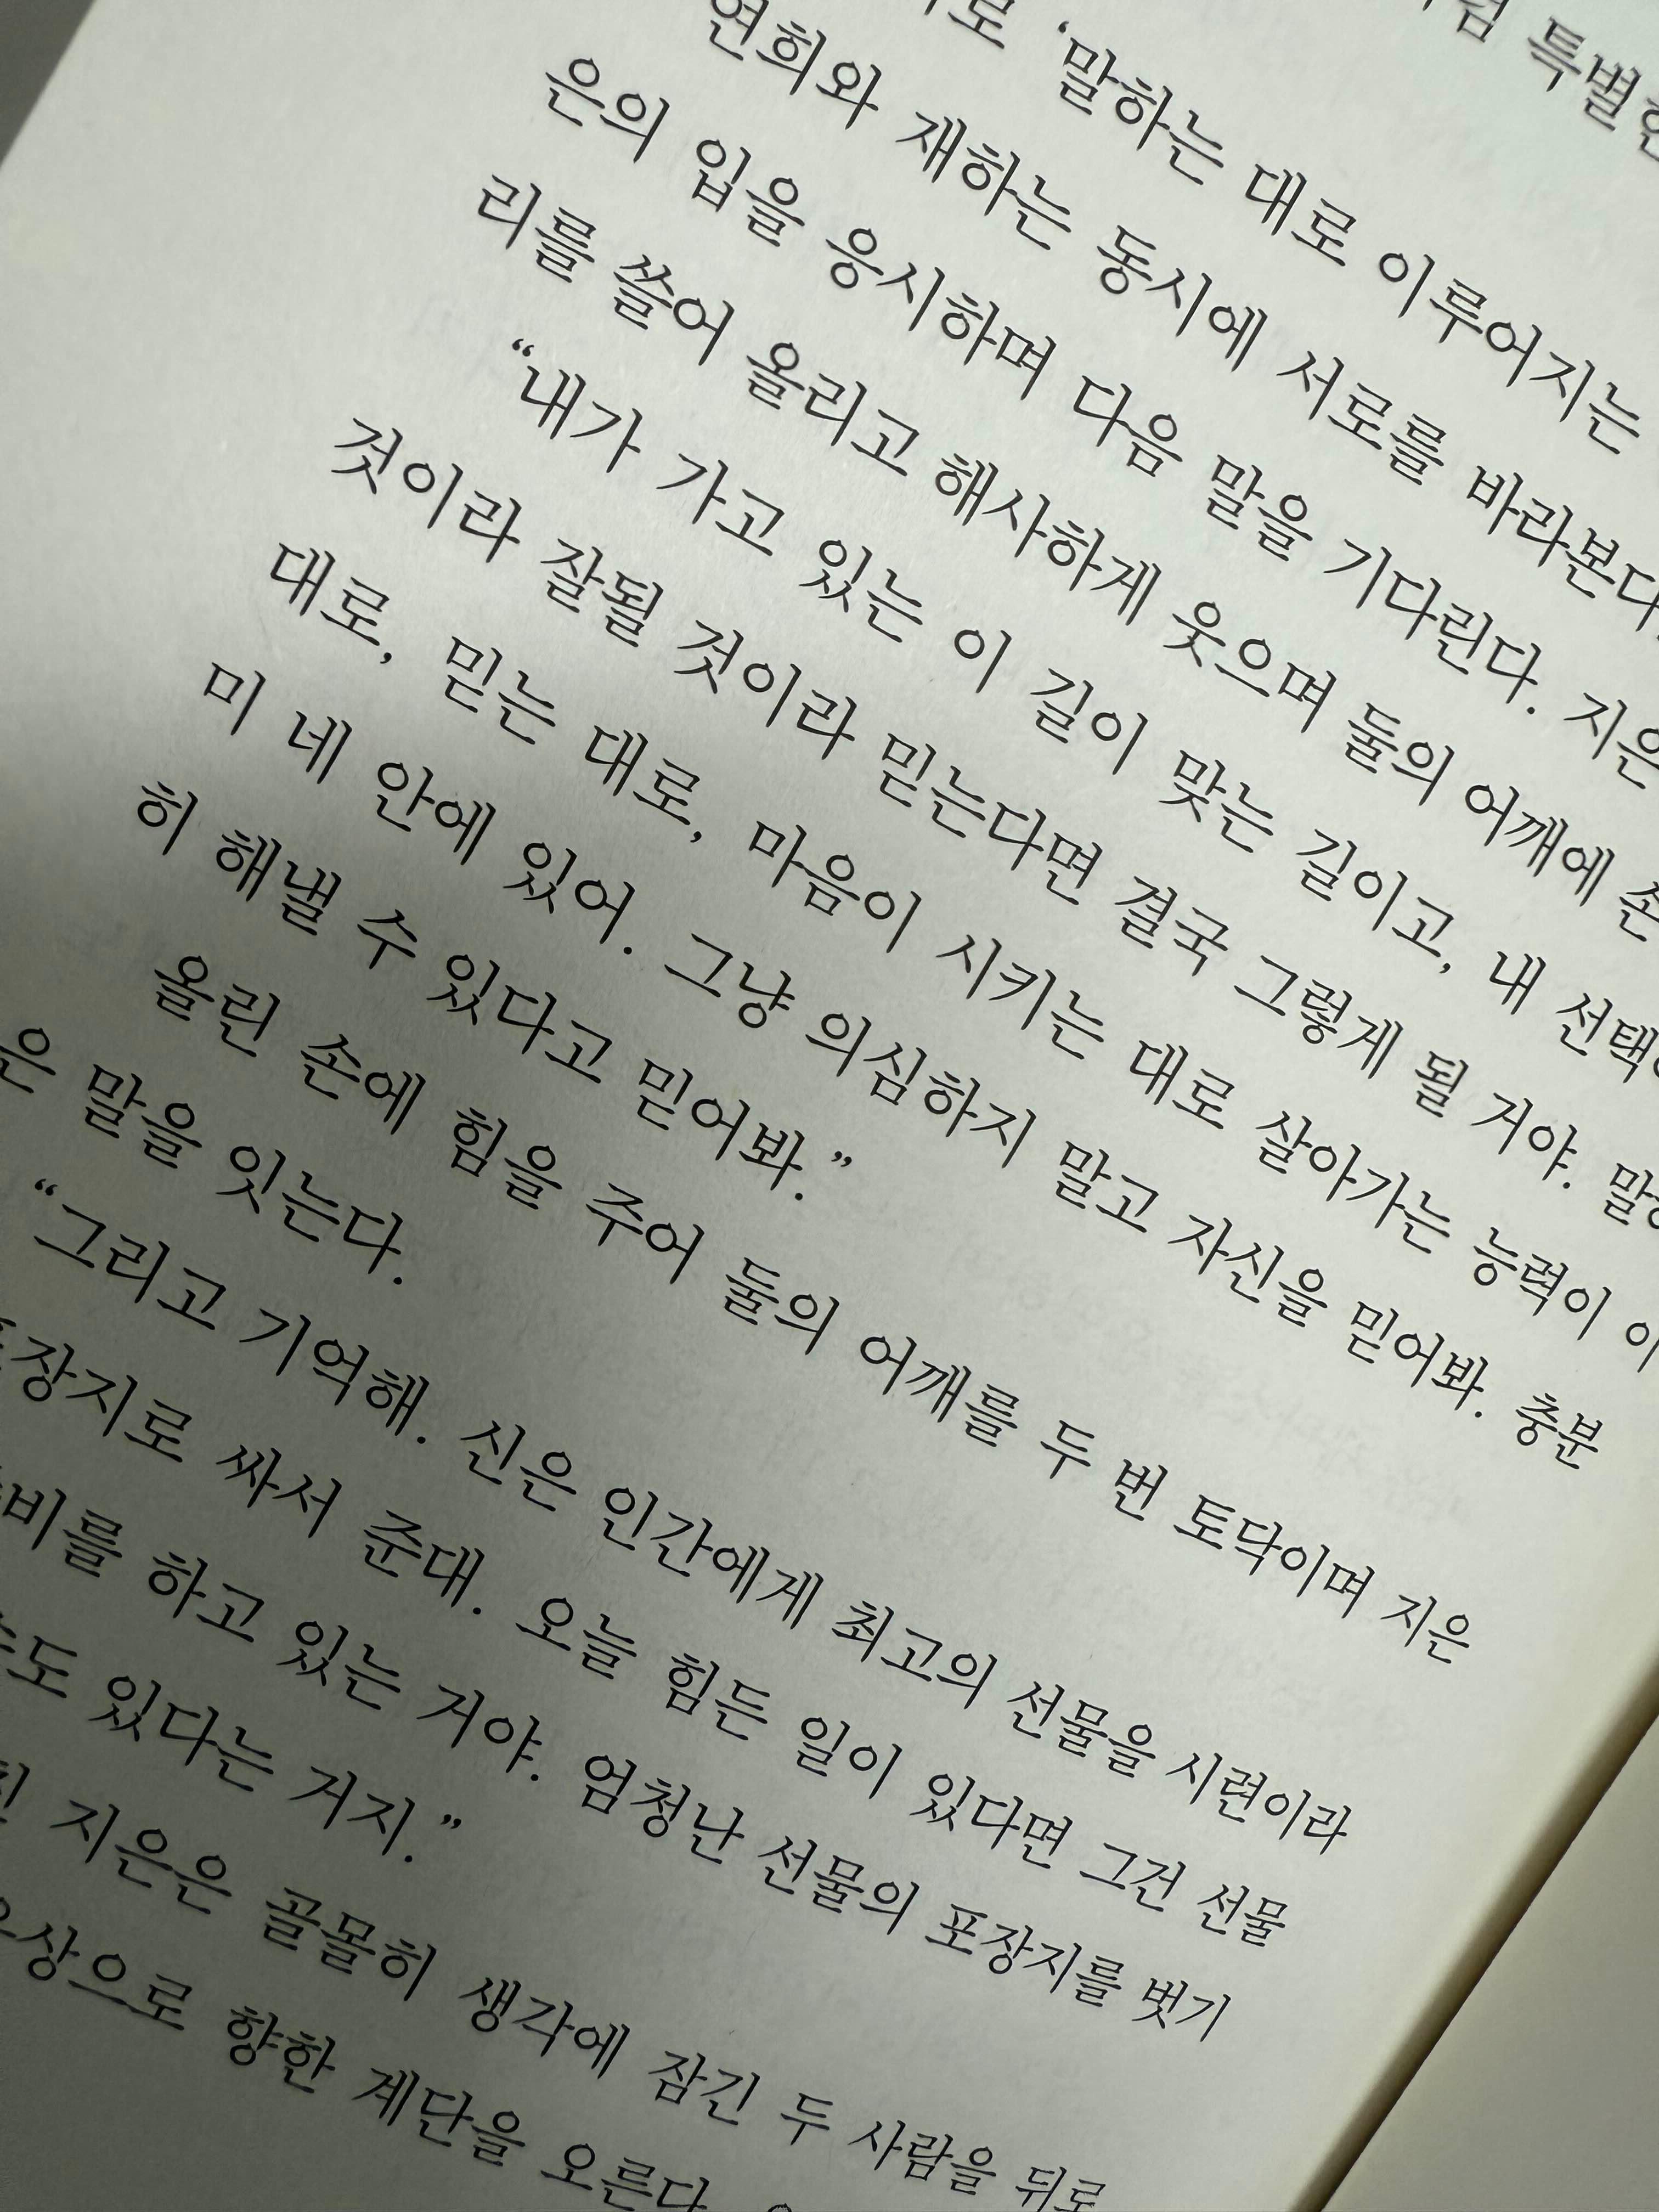 특별한
‘말하는 대로 이루어지는
연희와 재하는 동시에 서로를 바라본다.
은의 입을 응시하며 다음 말을 기다린다. 지은
리를 쓸어 올리고 해사하게 웃으며 둘의 어깨에 손
“내가 가고 있는 이 길이 맞는 길이고, 내 선택
것이라 잘될 것이라 믿는다면 결국 그렇게 될 거야. 말
대로, 믿는 대로, 마음이 시키는 대로 살아가는 능력이 이
미 네 안에 있어. 그냥 의심하지 말고 자신을 믿어봐. 충분
히 해낼 수 있다고 믿어봐.”
올린 손에 힘을 주어 둘의 어깨를 두 번 토닥이며 지은
은 말을 잇는다.
“그리고 기억해. 신은 인간에게 최고의 선물을 시련이라
포장지로 싸서 준대. 오늘 힘든 일이 있다면 그건 선물
비를 하고 있는 거야. 엄청난 선물의 포장지를 벗기
도 있다는 거지.”
지은은 골몰히 생각에 잠긴 두 사람을 뒤로
상으로 향한 계단을 오른다.